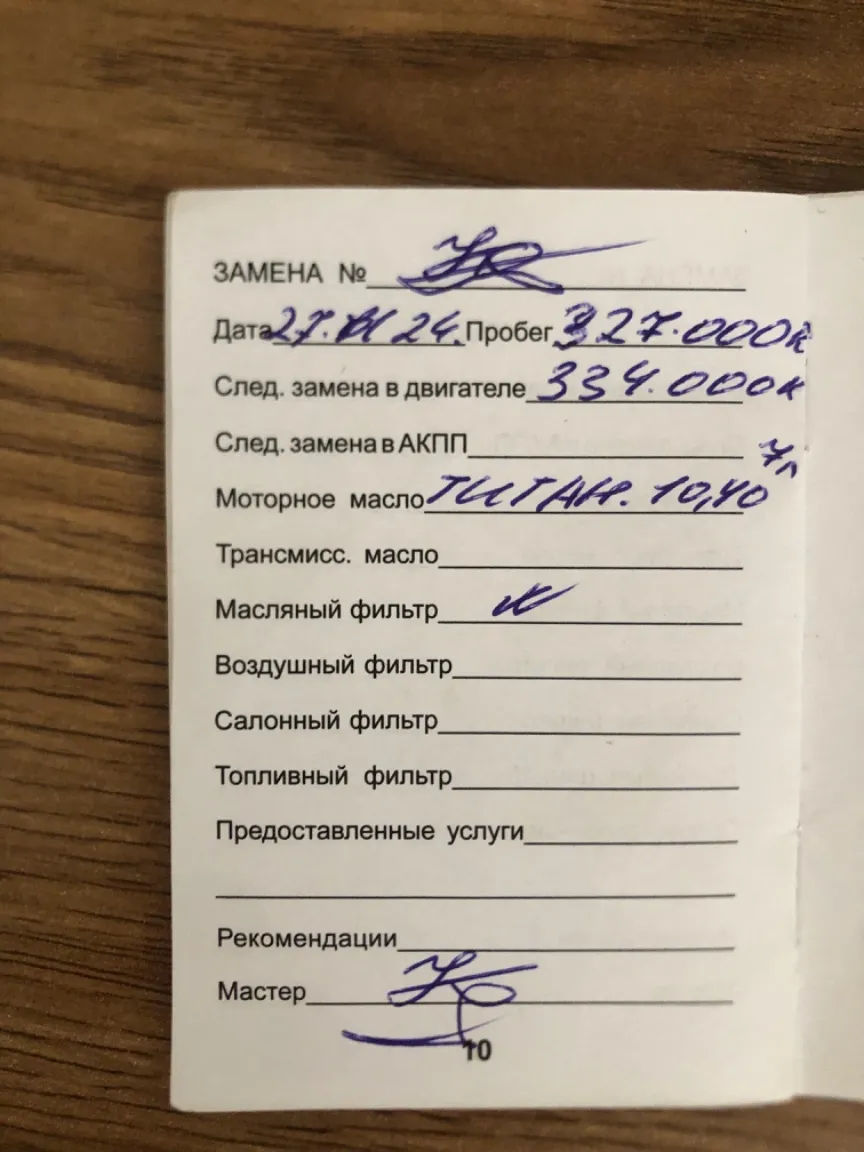 ЗАМЕНА №
Дата 27. 24. Пробег 327.000к
След. замена в двигателе 334.000к
След. замена в АКПП
7л
Моторное масло ТИТАН. 10,40
Трансмисс. масло
Масляный фильтр
Воздушный фильтр
Салонный фильтр
Топливный фильтр
Предоставленные услуги
Рекомендации
Мастер
10